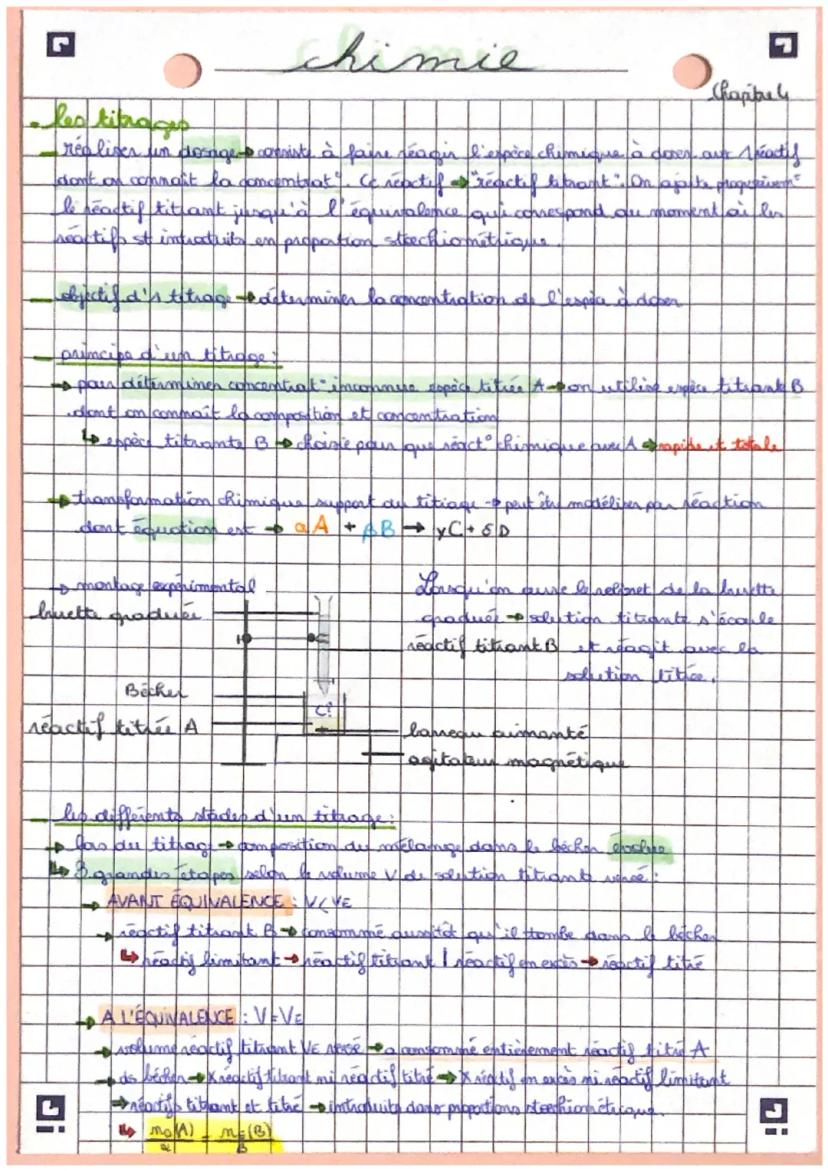 chimie
Chapitre 4
. les titrages
- réaliser un dosage → consiste à faire réagir l'espèce chimique à doser avec 1 réactif
dont on connaît la concentrat°. Ce réactif → "réactif titrant". On ajoute progressivemt
le réactif titrant jusqu'à l'équivalence qui correspond au moment où les
réactifs st introduits en proportion stœchiométrique.
- objectif d'1 titrage → déterminer la concentration de l'espèce à doser
- principe d'un titrage :
→ pour déterminer concentrat° inconnue espèce titrée A → on utilise espèce titrante B
dont on connaît la composition et concentration
↳ espèce titrante B → choisie pour que réact° chimique avec A → rapide et totale
→ transformation chimique support du titrage → peut être modéliser par réaction
dont équation est → αA + βB → γC + δD
→ montage expérimental
Lorsqu'on ouvre le robinet de la burette
burette graduée
graduée → solution titrante s'écoule
réactif titrant B et réagit avec la
solution titrée.
Bécher
réactif titrée A
barreau aimanté
agitateur magnétique
- les différents stades d'un titrage :
→ lors du titrage → composition du mélange dans le bécher évolue
↳ 3 grandes étapes selon le volume V de solution titrante versé :
→ AVANT ÉQUIVALENCE : V < VE
→ réactif titrant B → consommé aussitôt qu'il tombe dans le bécher
↳ réactif limitant → réactif titrant | réactif en excès → réactif titré
→ A L'ÉQUIVALENCE : V = VE
→ volume réactif titrant VE versé → a consommé entièrement réactif titré A
→ ds bécher → X réactif titrant ni réactif titré → X réactif en excès ni réactif limitant
→ réactifs titrant et titré → introduits dans proportions stœchiométrique.
↳ n0(A)/α = nE(B)/β